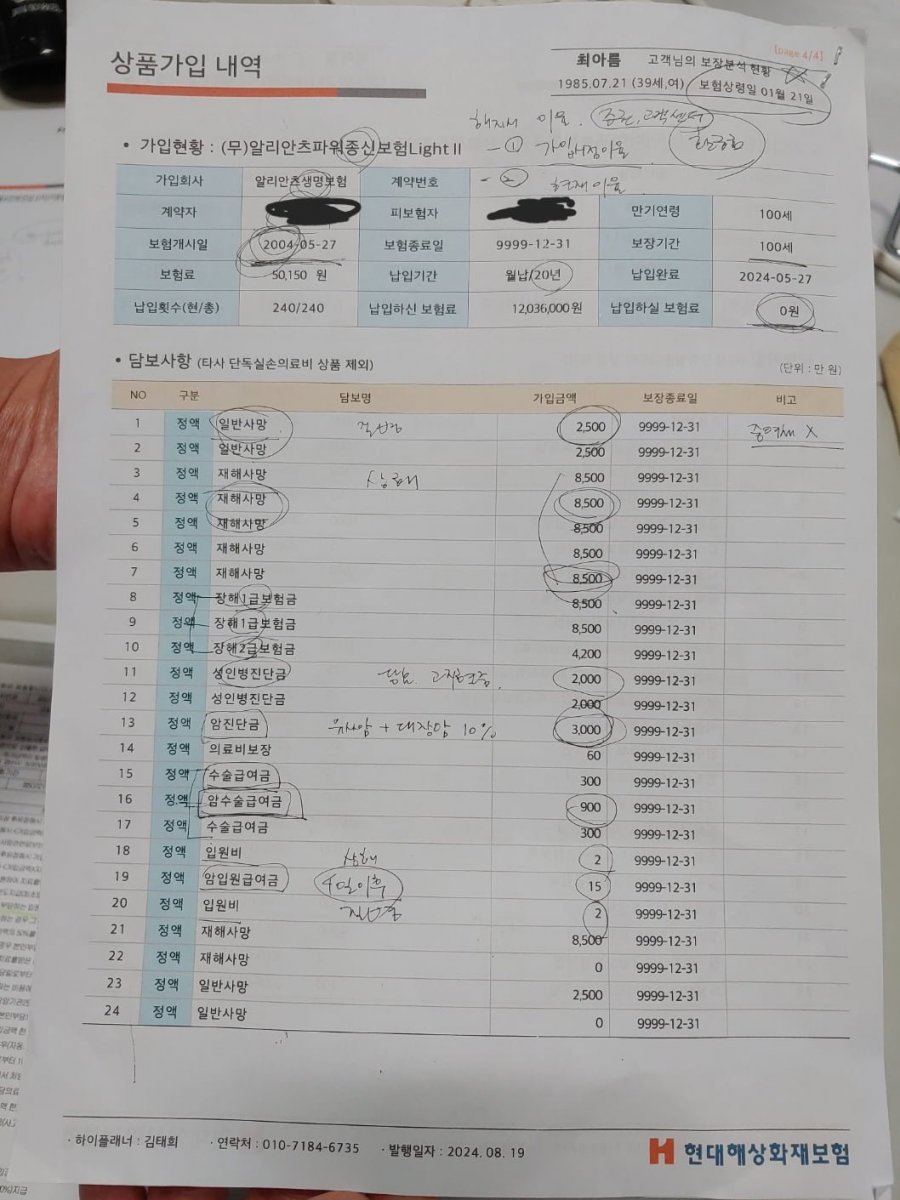 상품가입 내역
[page 4/4]
최아름 고객님의 보장분석 현황
1985.07.21 (39세,여) 보험상령일 01월 21일
해지시 이율. 증권, 고객센터
• 가입현황 : (무)알리안츠파워종신보험Light II - ① 가입시점이율
- ② 현재이율
가입회사 알리안츠생명보험 계약번호
계약자 피보험자 만기연령 100세
보험개시일 2004-05-27 보험종료일 9999-12-31 보장기간 100세
보험료 50,150 원 납입기간 월납/20년 납입완료 2024-05-27
납입횟수(현/총) 240/240 납입하신 보험료 12,036,000원 납입하실 보험료 0원
• 담보사항 (타사 단독실손의료비 상품 제외) (단위 : 만 원)
NO 구분 담보명 가입금액 보장종료일 비고
1 정액 일반사망 2,500 9999-12-31
2 정액 일반사망 2,500 9999-12-31
3 정액 재해사망 상해 8,500 9999-12-31
4 정액 재해사망 8,500 9999-12-31
5 정액 재해사망 8,500 9999-12-31
6 정액 재해사망 8,500 9999-12-31
7 정액 재해사망 8,500 9999-12-31
8 정액 장해1급보험금 8,500 9999-12-31
9 정액 장해1급보험금 8,500 9999-12-31
10 정액 장해2급보험금 4,200 9999-12-31
11 정액 성인병진단금 2,000 9999-12-31
12 정액 성인병진단금 2,000 9999-12-31
13 정액 암진단금 유사암 + 대장암 10% 3,000 9999-12-31
14 정액 의료비보장 60 9999-12-31
15 정액 수술급여금 300 9999-12-31
16 정액 암수술급여금 900 9999-12-31
17 정액 수술급여금 300 9999-12-31
18 정액 입원비 상해 2 9999-12-31
19 정액 암입원급여금 4일이후 15 9999-12-31
20 정액 입원비 질병 2 9999-12-31
21 정액 재해사망 8,500 9999-12-31
22 정액 재해사망 0 9999-12-31
23 정액 일반사망 2,500 9999-12-31
24 정액 일반사망 0 9999-12-31
· 하이플래너 : 김태희 · 연락처 : 010-7184-6735 · 발행일자 : 2024. 08. 19
현대해상화재보험